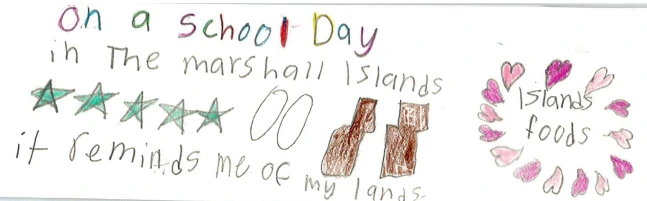 On a School Day
in The marshall Islands
it reminds me of my lands.
Islands
foods